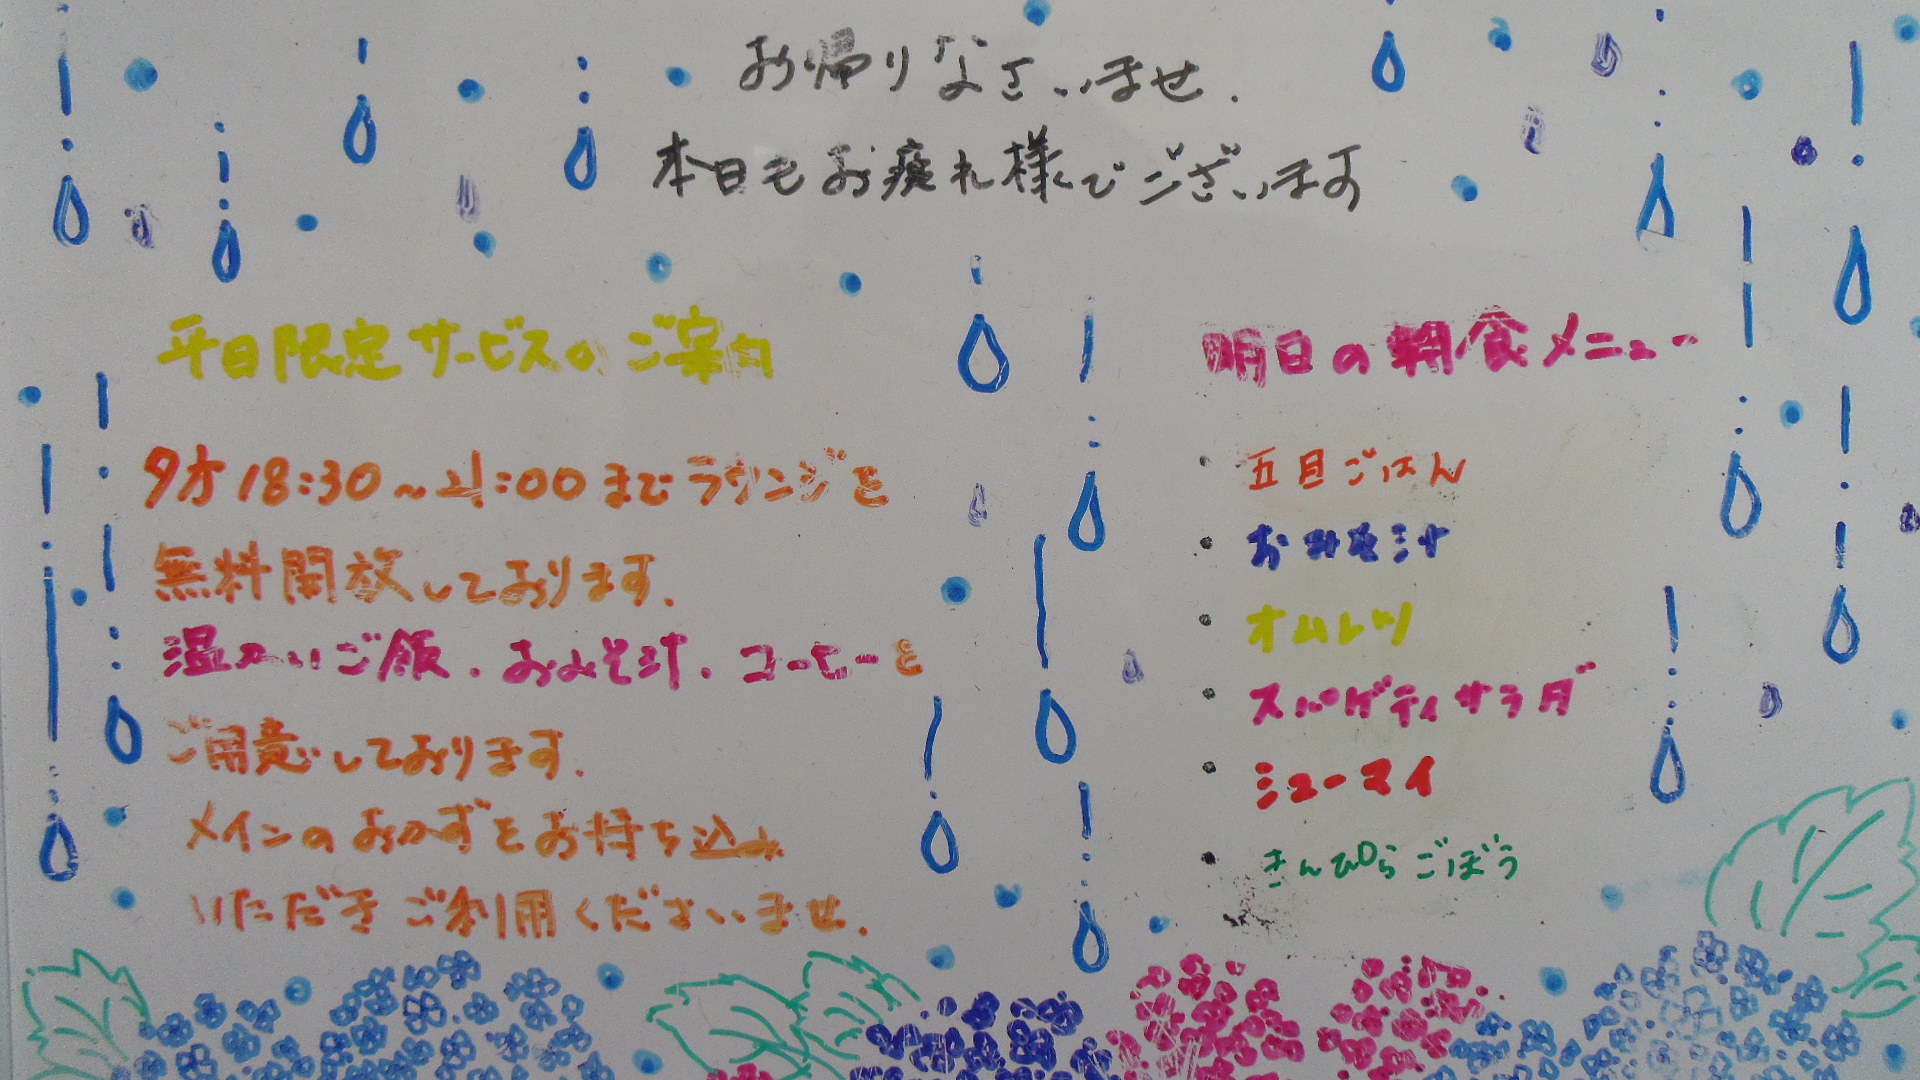 お帰りなさいませ.
本日もお疲れ様でございます
平日限定サービスのご案内
夕方18:30~21:00までラウンジを
無料開放しております.
温かいご飯.おみそ汁.コーヒーを
ご用意しております.
メインのおかずをお持ち込み
いただきご利用くださいませ.
明日の朝食メニュー
・五目ごはん
・おみそ汁
・オムレツ
・スパゲティサラダ
・シューマイ
・きんぴらごぼう